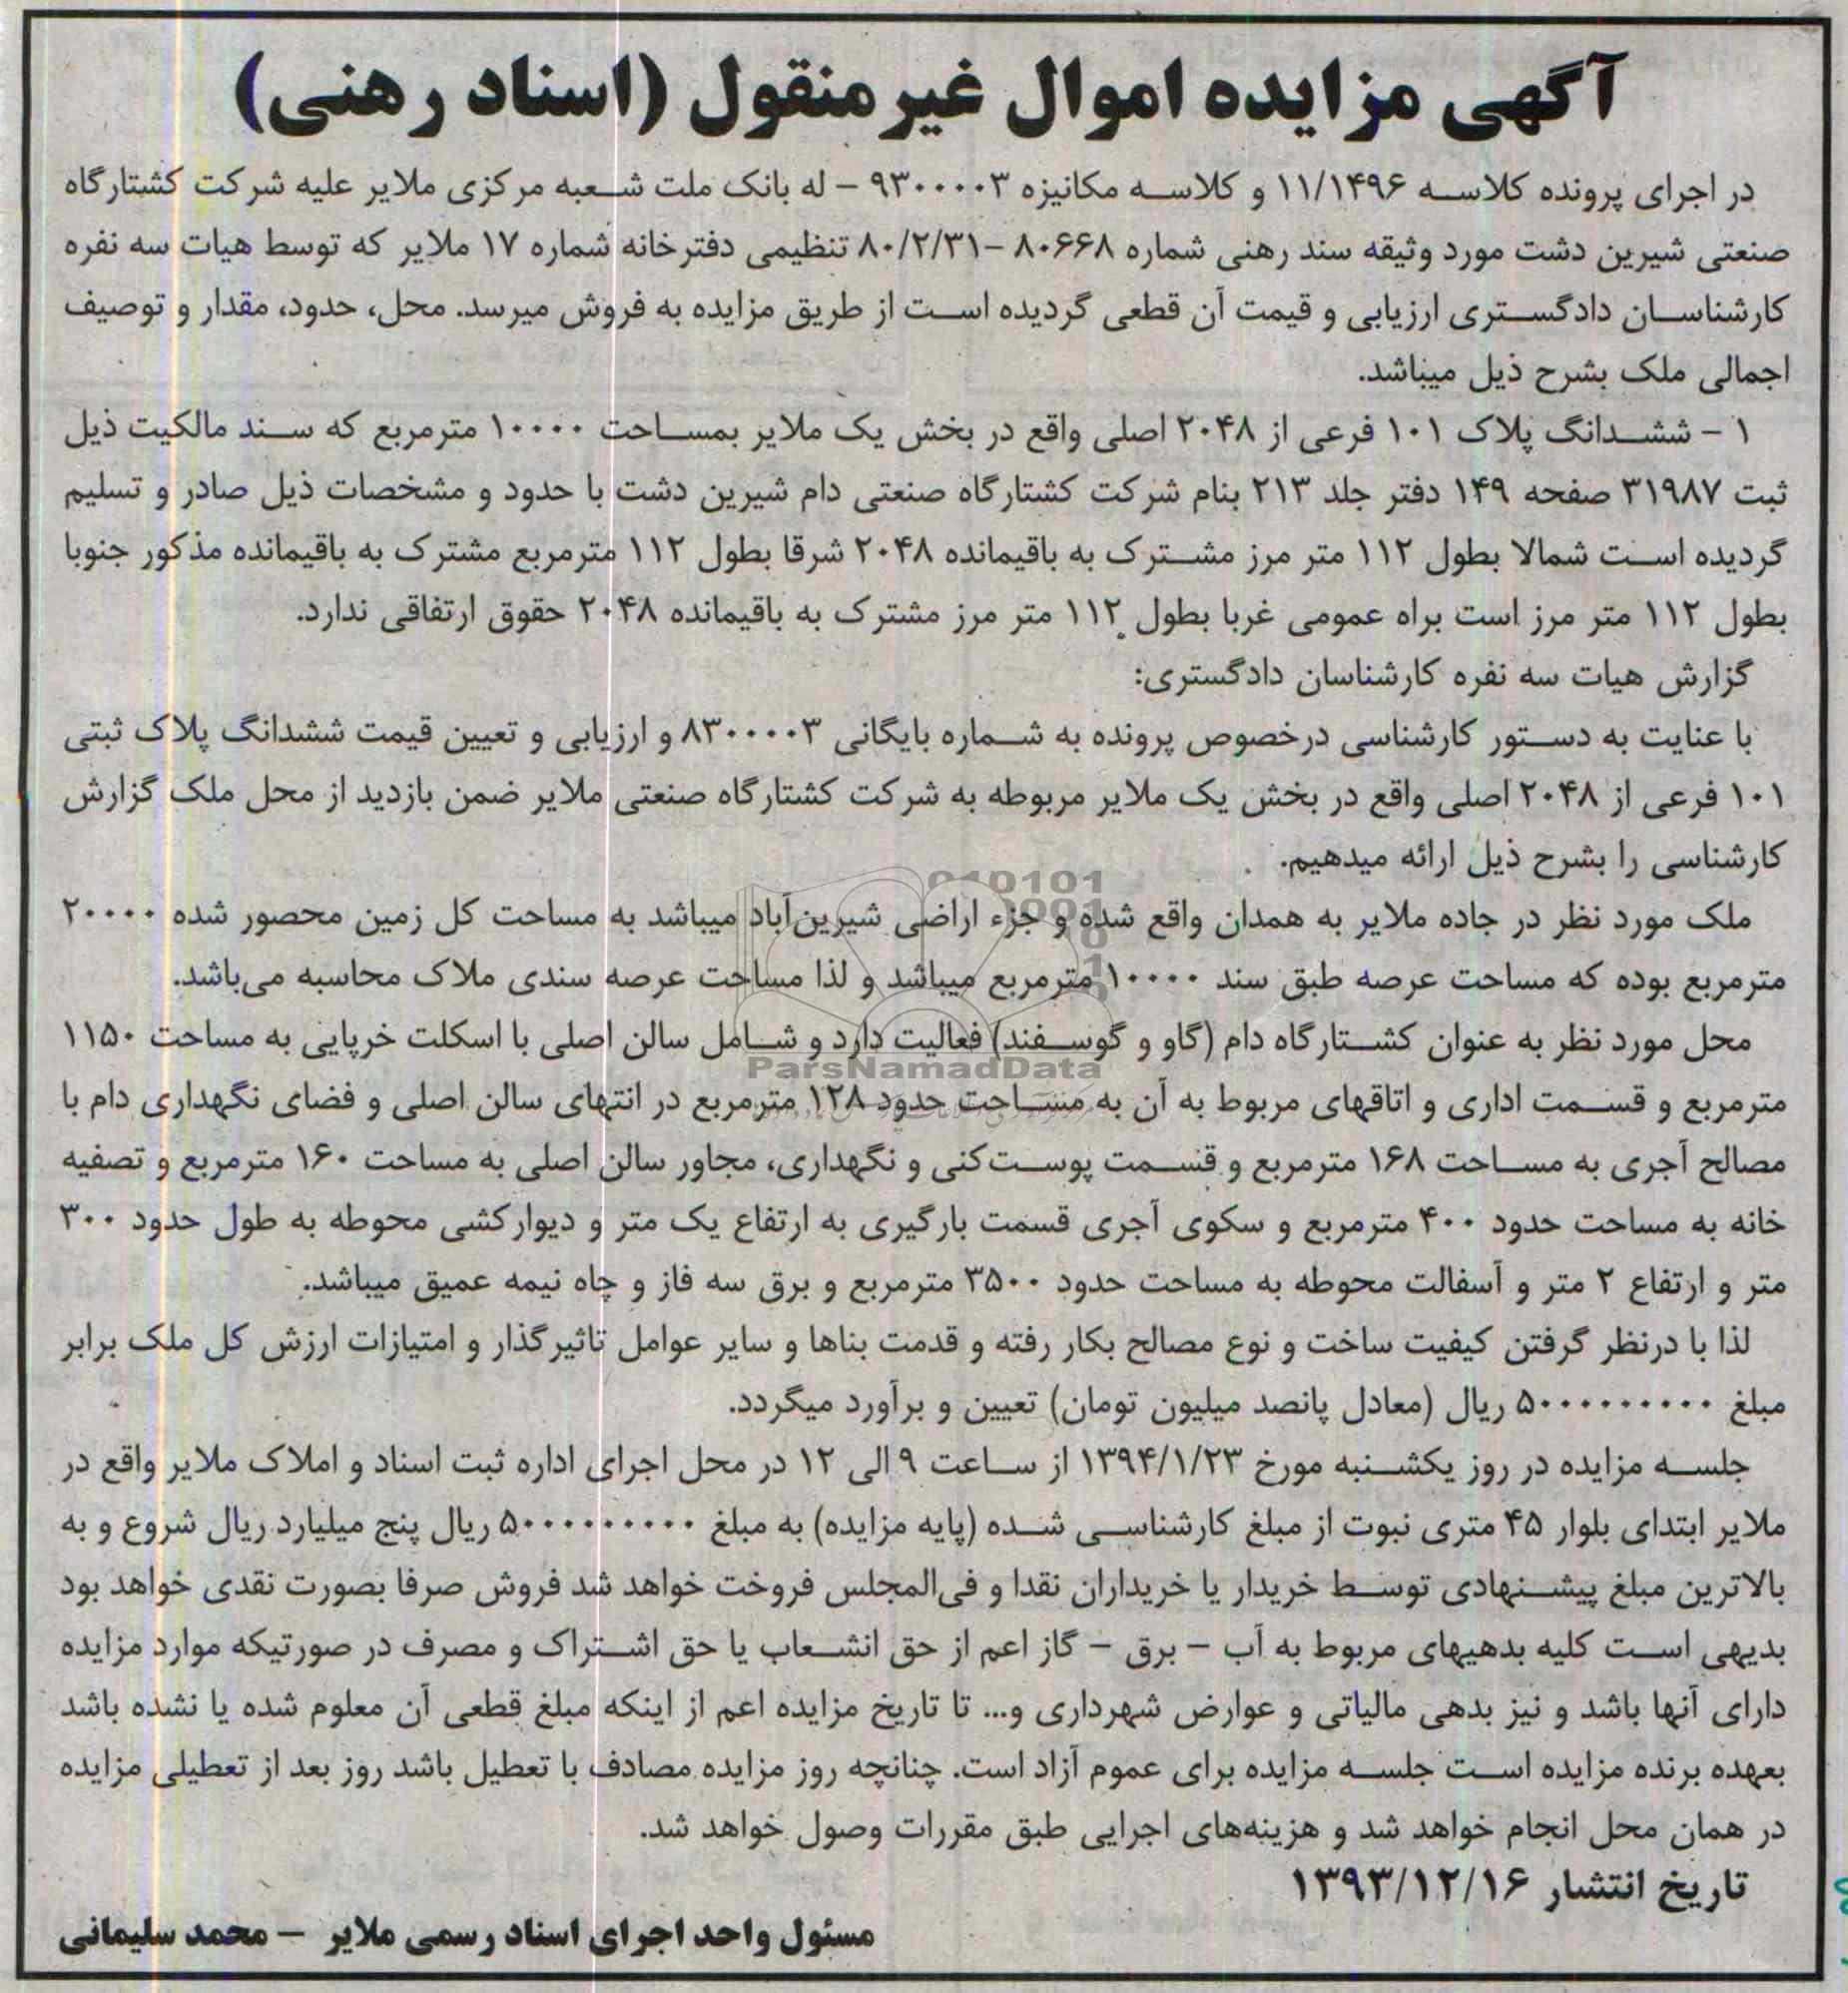 آگهی مزایده اموال غیرمنقول (اسناد رهنی)
در اجرای پرونده کلاسه ۱۱/۱۴۹۶ و کلاسه مکانیزه ۹۳۰۰۰۰۳ – له بانک ملت شعبه مرکزی ملایر علیه شرکت کشتارگاه
صنعتی شیرین دشت مورد وثیقه سند رهنی شماره ۸۰۶۶۸ –۸۰/۲/۳۱ تنظیمی دفترخانه شماره ۱۷ ملایر که توسط هیات سه نفره
کارشناسان دادگستری ارزیابی و قیمت آن قطعی گردیده است از طریق مزایده به فروش میرسد. محل، حدود، مقدار و توصیف
اجمالی ملک بشرح ذیل میباشد.
۱ – ششدانگ پلاک ۱۰۱ فرعی از ۲۰۴۸ اصلی واقع در بخش یک ملایر بمساحت ۱۰۰۰۰ مترمربع که سند مالکیت ذیل
ثبت ۳۱۹۸۷ صفحه ۱۴۹ دفتر جلد ۲۱۳ بنام شرکت کشتارگاه صنعتی دام شیرین دشت با حدود و مشخصات ذیل صادر و تسلیم
گردیده است شمالا بطول ۱۱۲ متر مرز مشترک به باقیمانده ۲۰۴۸ شرقا بطول ۱۱۲ مترمربع مشترک به باقیمانده مذکور جنوبا
بطول ۱۱۲ متر مرز است براه عمومی غربا بطول ۱۱۲ متر مرز مشترک به باقیمانده ۲۰۴۸ حقوق ارتفاقی ندارد.
گزارش هیات سه نفره کارشناسان دادگستری:
با عنایت به دستور کارشناسی درخصوص پرونده به شماره بایگانی ۸۳۰۰۰۰۳ و ارزیابی و تعیین قیمت ششدانگ پلاک ثبتی
۱۰۱ فرعی از ۲۰۴۸ اصلی واقع در بخش یک ملایر مربوطه به شرکت کشتارگاه صنعتی ملایر ضمن بازدید از محل ملک گزارش
کارشناسی را بشرح ذیل ارائه میدهیم.
ملک مورد نظر در جاده ملایر به همدان واقع شده و جزء اراضی شیرین‌آباد میباشد به مساحت کل زمین محصور شده ۲۰۰۰۰
مترمربع بوده که مساحت عرصه طبق سند ۱۰۰۰۰ مترمربع میباشد و لذا مساحت عرصه سندی ملاک محاسبه می‌باشد.
محل مورد نظر به عنوان کشتارگاه دام (گاو و گوسفند) فعالیت دارد و شامل سالن اصلی با اسکلت خرپایی به مساحت ۱۱۵۰
ParsNamadData
مترمربع و قسمت اداری و اتاقهای مربوط به آن به مساحت حدود ۱۲۸ مترمربع در انتهای سالن اصلی و فضای نگهداری دام با
مصالح آجری به مساحت ۱۶۸ مترمربع و قسمت پوست‌کنی و نگهداری، مجاور سالن اصلی به مساحت ۱۶۰ مترمربع و تصفیه
خانه به مساحت حدود ۴۰۰ مترمربع و سکوی آجری قسمت بارگیری به ارتفاع یک متر و دیوارکشی محوطه به طول حدود ۳۰۰
متر و ارتفاع ۲ متر و آسفالت محوطه به مساحت حدود ۳۵۰۰ مترمربع و برق سه فاز و چاه نیمه عمیق میباشد.
لذا با درنظر گرفتن کیفیت ساخت و نوع مصالح بکار رفته و قدمت بناها و سایر عوامل تاثیرگذار و امتیازات ارزش کل ملک برابر
مبلغ ۵۰۰۰۰۰۰۰۰۰ ریال (معادل پانصد میلیون تومان) تعیین و برآورد میگردد.
جلسه مزایده در روز یکشنبه مورخ ۱۳۹۴/۱/۲۳ از ساعت ۹ الی ۱۲ در محل اجرای اداره ثبت اسناد و املاک ملایر واقع در
ملایر ابتدای بلوار ۴۵ متری نبوت از مبلغ کارشناسی شده (پایه مزایده) به مبلغ ۵۰۰۰۰۰۰۰۰۰ ریال پنج میلیارد ریال شروع و به
بالاترین مبلغ پیشنهادی توسط خریدار یا خریداران نقدا و فی‌المجلس فروخت خواهد شد فروش صرفا بصورت نقدی خواهد بود
بدیهی است کلیه بدهیهای مربوط به آب – برق – گاز اعم از حق انشعاب یا حق اشتراک و مصرف در صورتیکه موارد مزایده
دارای آنها باشد و نیز بدهی مالیاتی و عوارض شهرداری و... تا تاریخ مزایده اعم از اینکه مبلغ قطعی آن معلوم شده یا نشده باشد
بعهده برنده مزایده است جلسه مزایده برای عموم آزاد است. چنانچه روز مزایده مصادف با تعطیل باشد روز بعد از تعطیلی مزایده
در همان محل انجام خواهد شد و هزینه‌های اجرایی طبق مقررات وصول خواهد شد.
تاریخ انتشار ۱۳۹۳/۱۲/۱۶
مسئول واحد اجرای اسناد رسمی ملایر – محمد سلیمانی